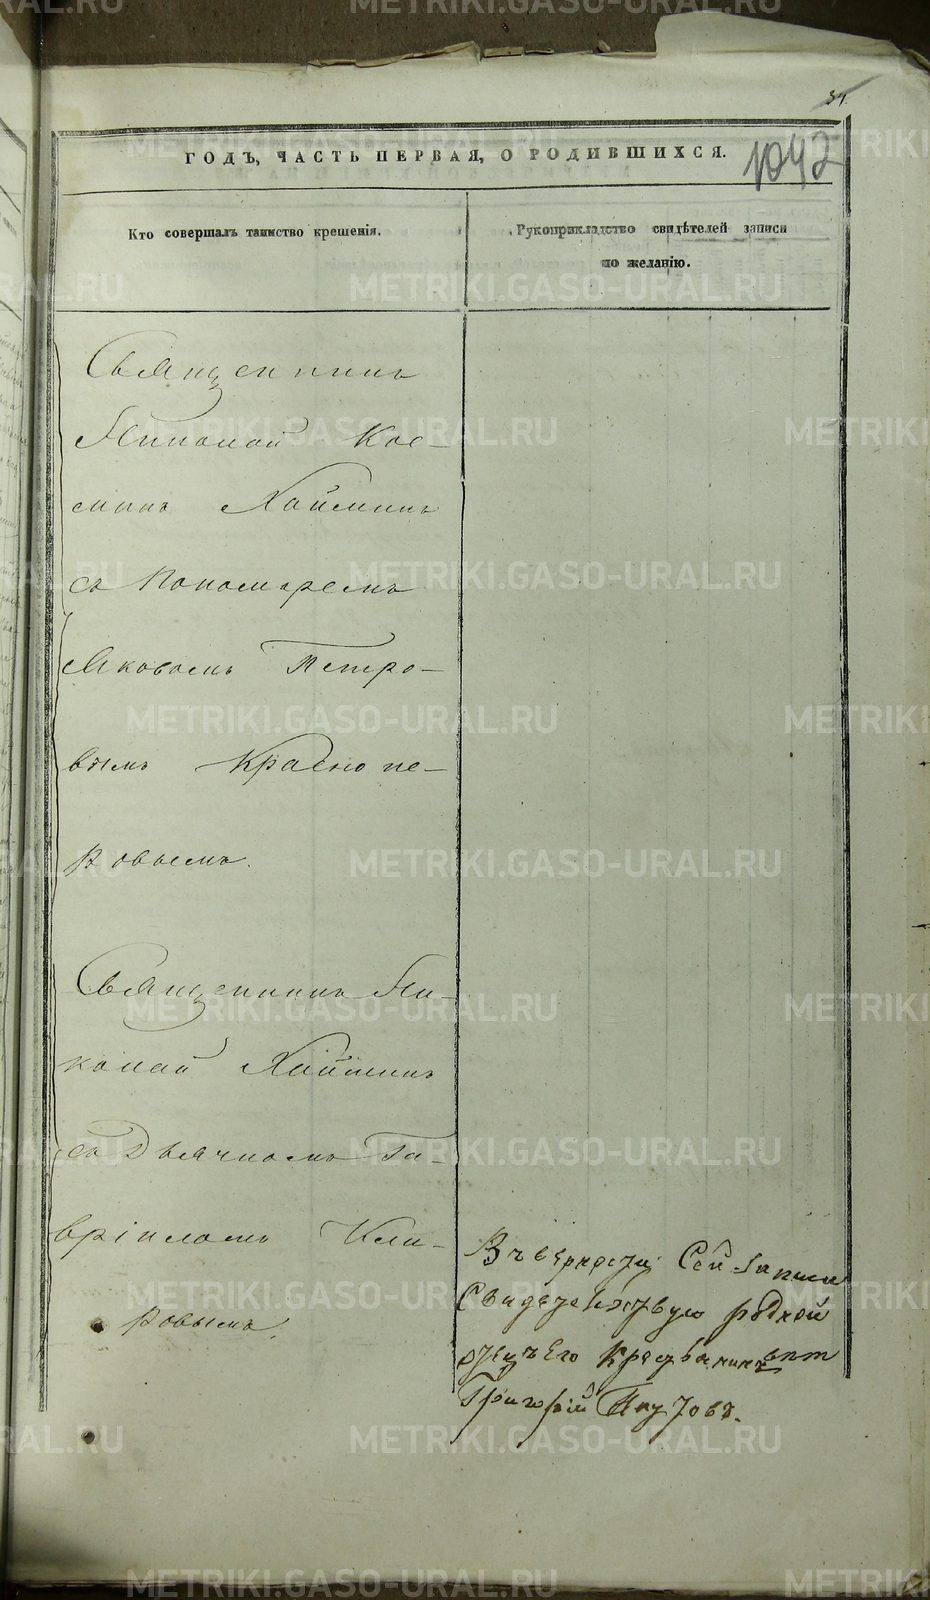 31
ГОДЪ, ЧАСТЬ ПЕРВАЯ, О РОДИВШИХСЯ.
1042
Кто совершалъ таинство крещенія.
Рукоприкладство свидѣтелей записи
по желанію.
Священникъ
Николай Кос-
минъ Хайминъ
съ Пономаремъ
Яковомъ Петро-
вымъ Краснопе-
ровымъ.
Священникъ Ни-
колай Хайминъ
съ Дьячкомъ Га-
вріиломъ Кли-
ровымъ.
Въ верности Сей записи
Свидетелствую родной
отецъ Его Крестьянинъ
Григорій
METRIKI.GASO-URAL.RU